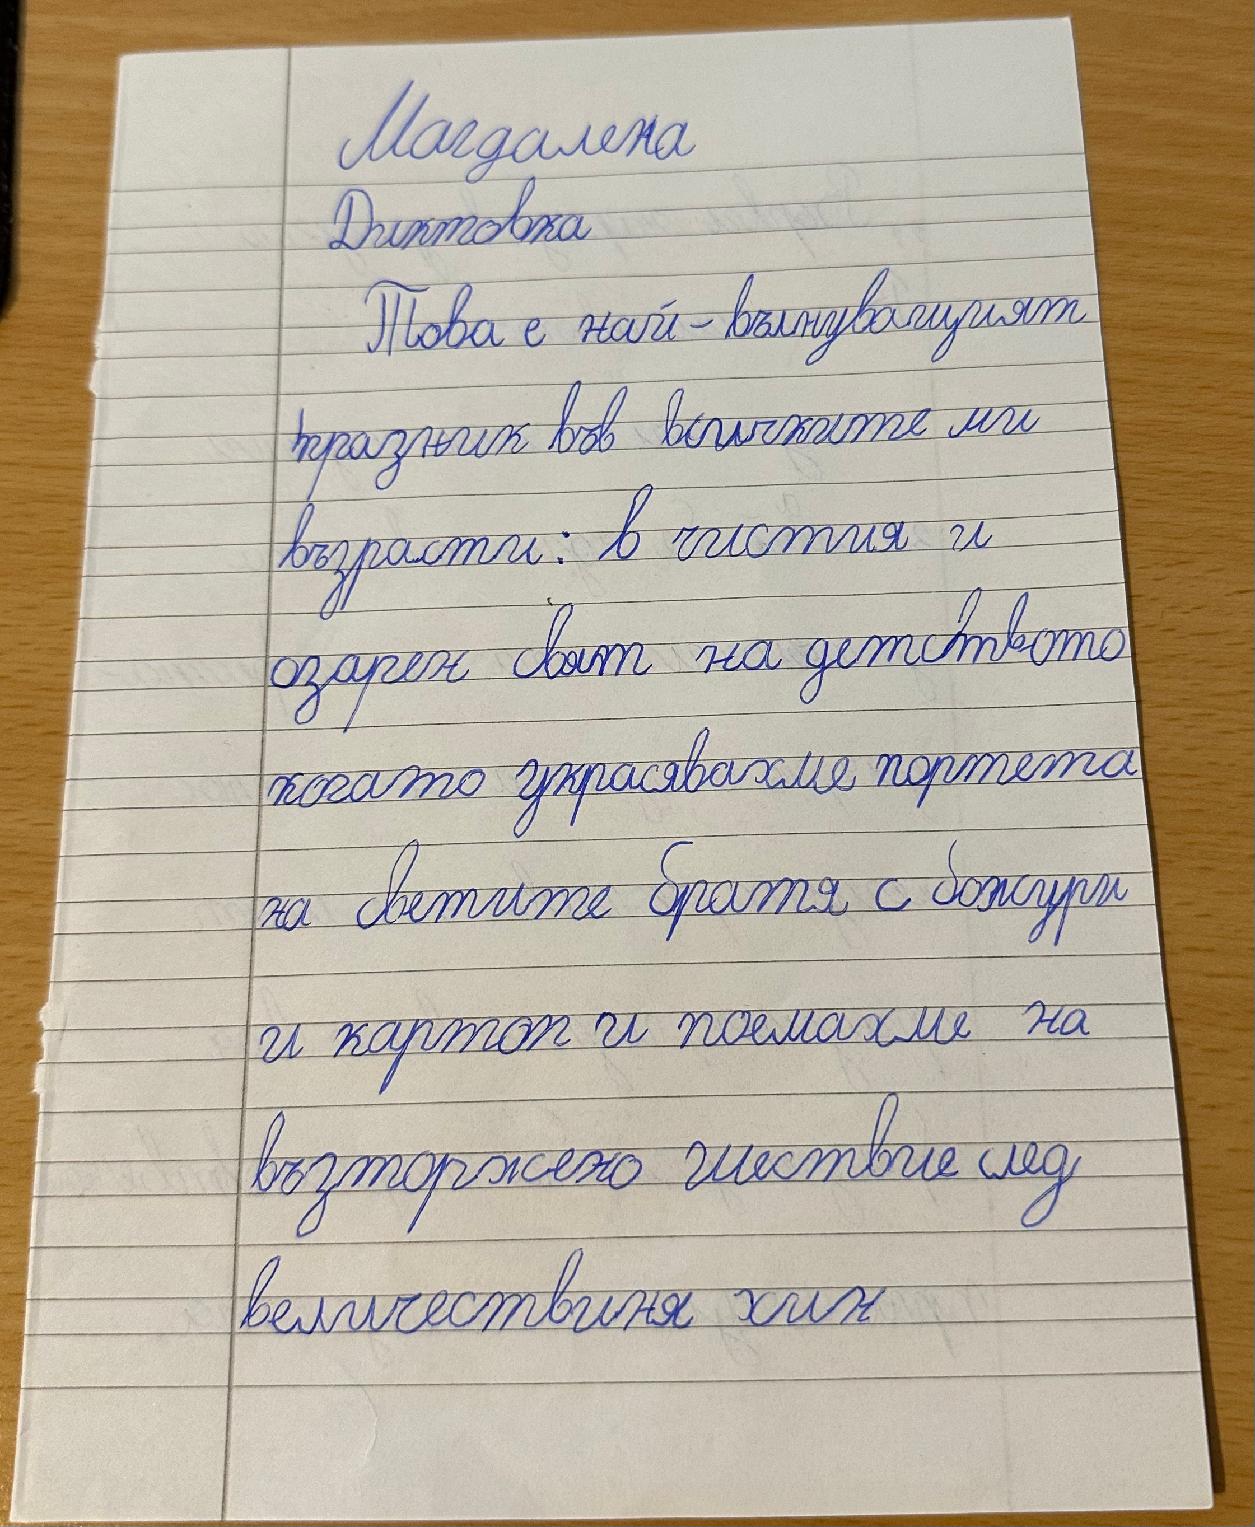 Магдалена
Диктовка
Това е най-вълнуващият
празник във всичките ми
възрасти: в чистия и
озарен свят на детството
когато украсявахме портета
на светите братя с божури
и картоп и поемахме на
възторжено шествие след
величествиня хин